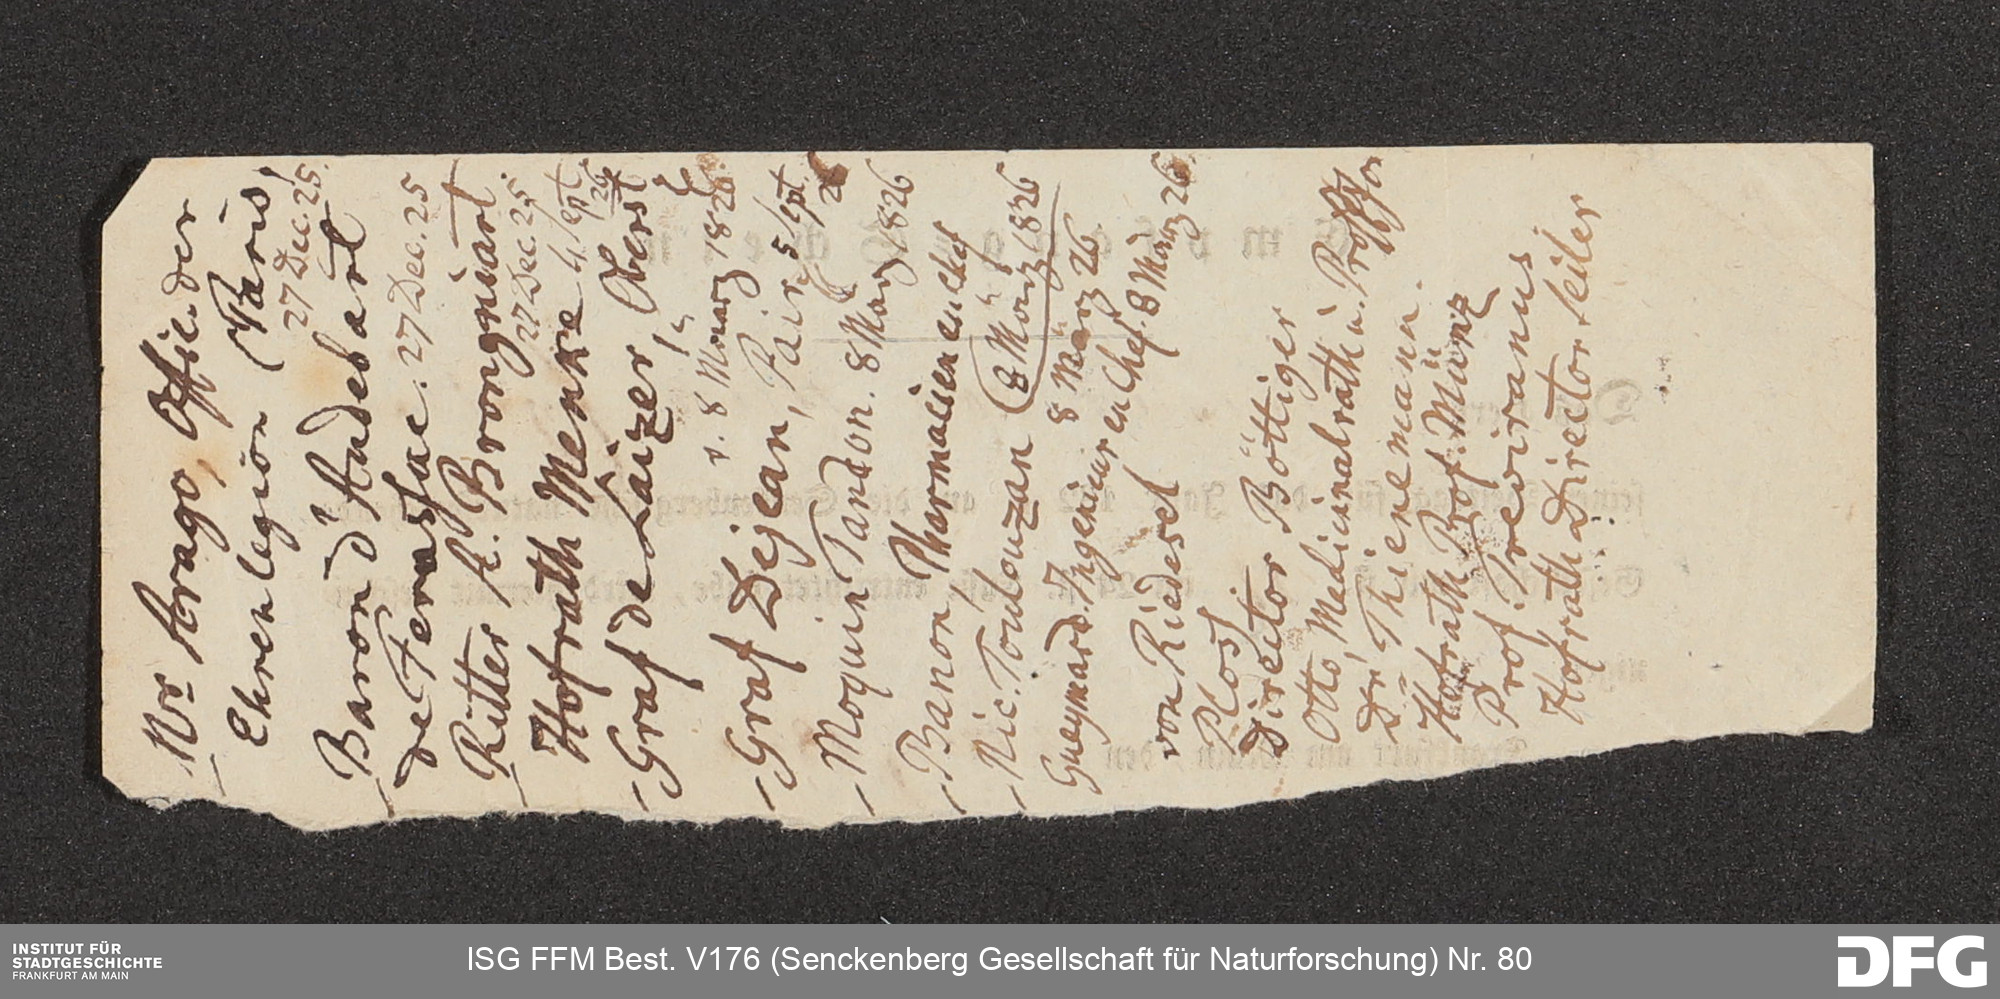 Mr Arago, Offic. der
Ehrenlegion (Paris)
27 Dec. 25.
Baron d'Audebart
de Ferussac. 27 Dec. 25
Ritter A. Brongniart
27 Dec. 25.
Hofrath Menke 4. Sept. 26
Graf de Laizer, Oberst
v. 8 März 1826.
Graf Dejean, Pair 5 Sept. 26
Moquin Tandon. 8 März 1826
Banon, Pharmacien en chef
Nic. Toulouzan (8 März 1826
8 März 26
Gueymard. Ingenieur en Chef. 8 März 26
von Riedesel
Plost
Director Böttiger
Otto, Medicinalrath u. Proffssor
Dr. Thienemann.
Hofrath Prof. Münz
Prof. Treviranus
Hofrath Director Seiler
INSTITUT FÜR
STADTGESCHICHTE
FRANKFURT AM MAIN
ISG FFM Best. V176 (Senckenberg Gesellschaft für Naturforschung) Nr. 80
DFG